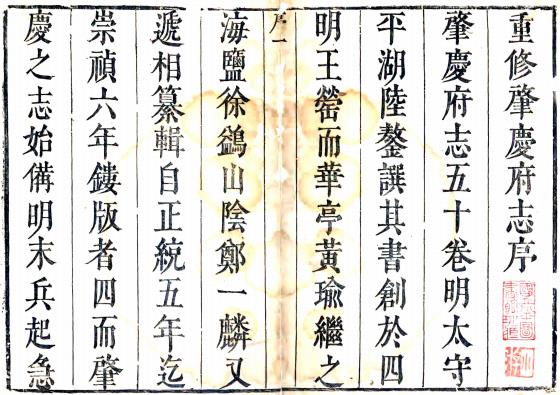 重修肇慶府志序
肇慶府志五十卷明太守
平湖陸鏊譔其書創於四
明王罃而華亭黃瑜繼之
序一
海鹽徐鷀山陰鄭一麟又
遞相纂輯自正統五年迄
崇禎六年鏤版者四而肇
慶之志始備明末兵起急